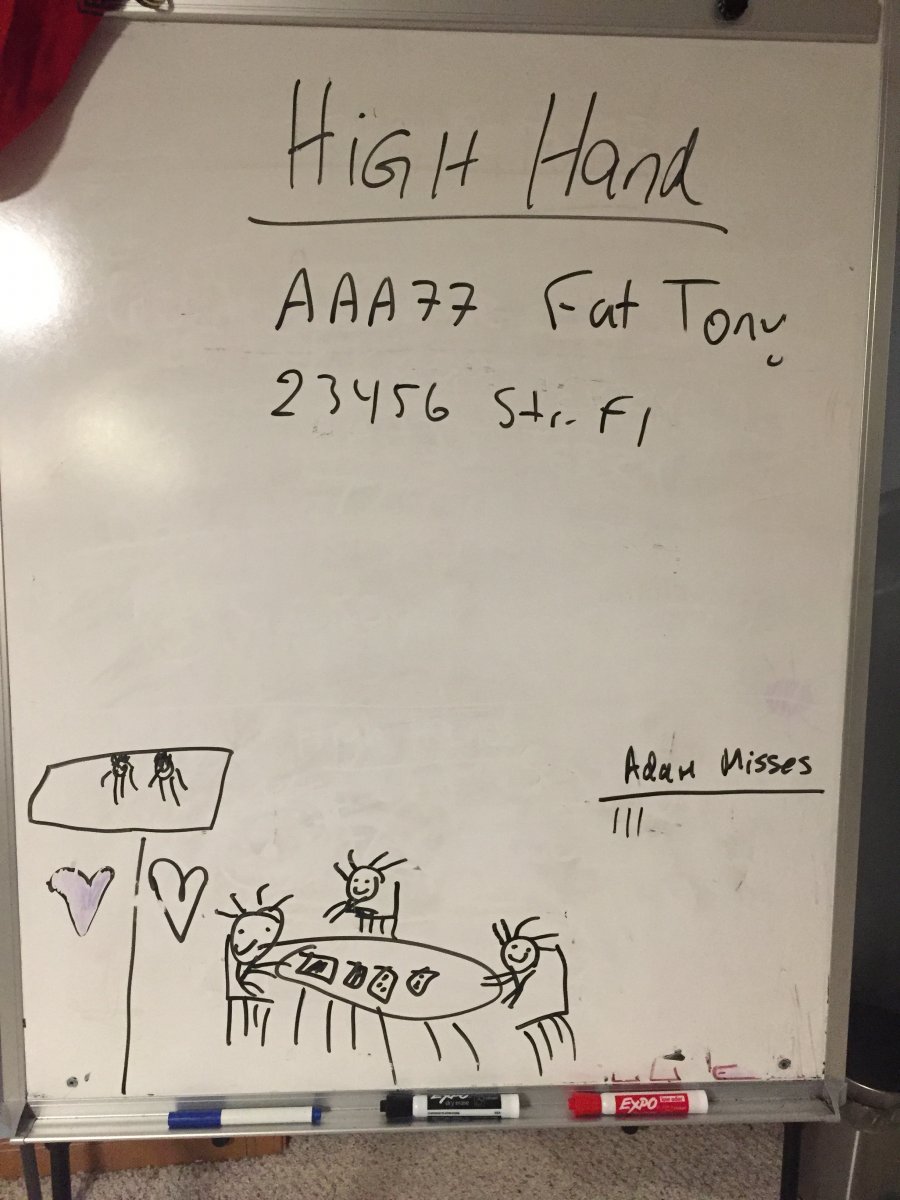 HiGH Hand
AAA77 Fat Tony
23456 Str. Fl
Adam Misses
III
EXPO
EXPO